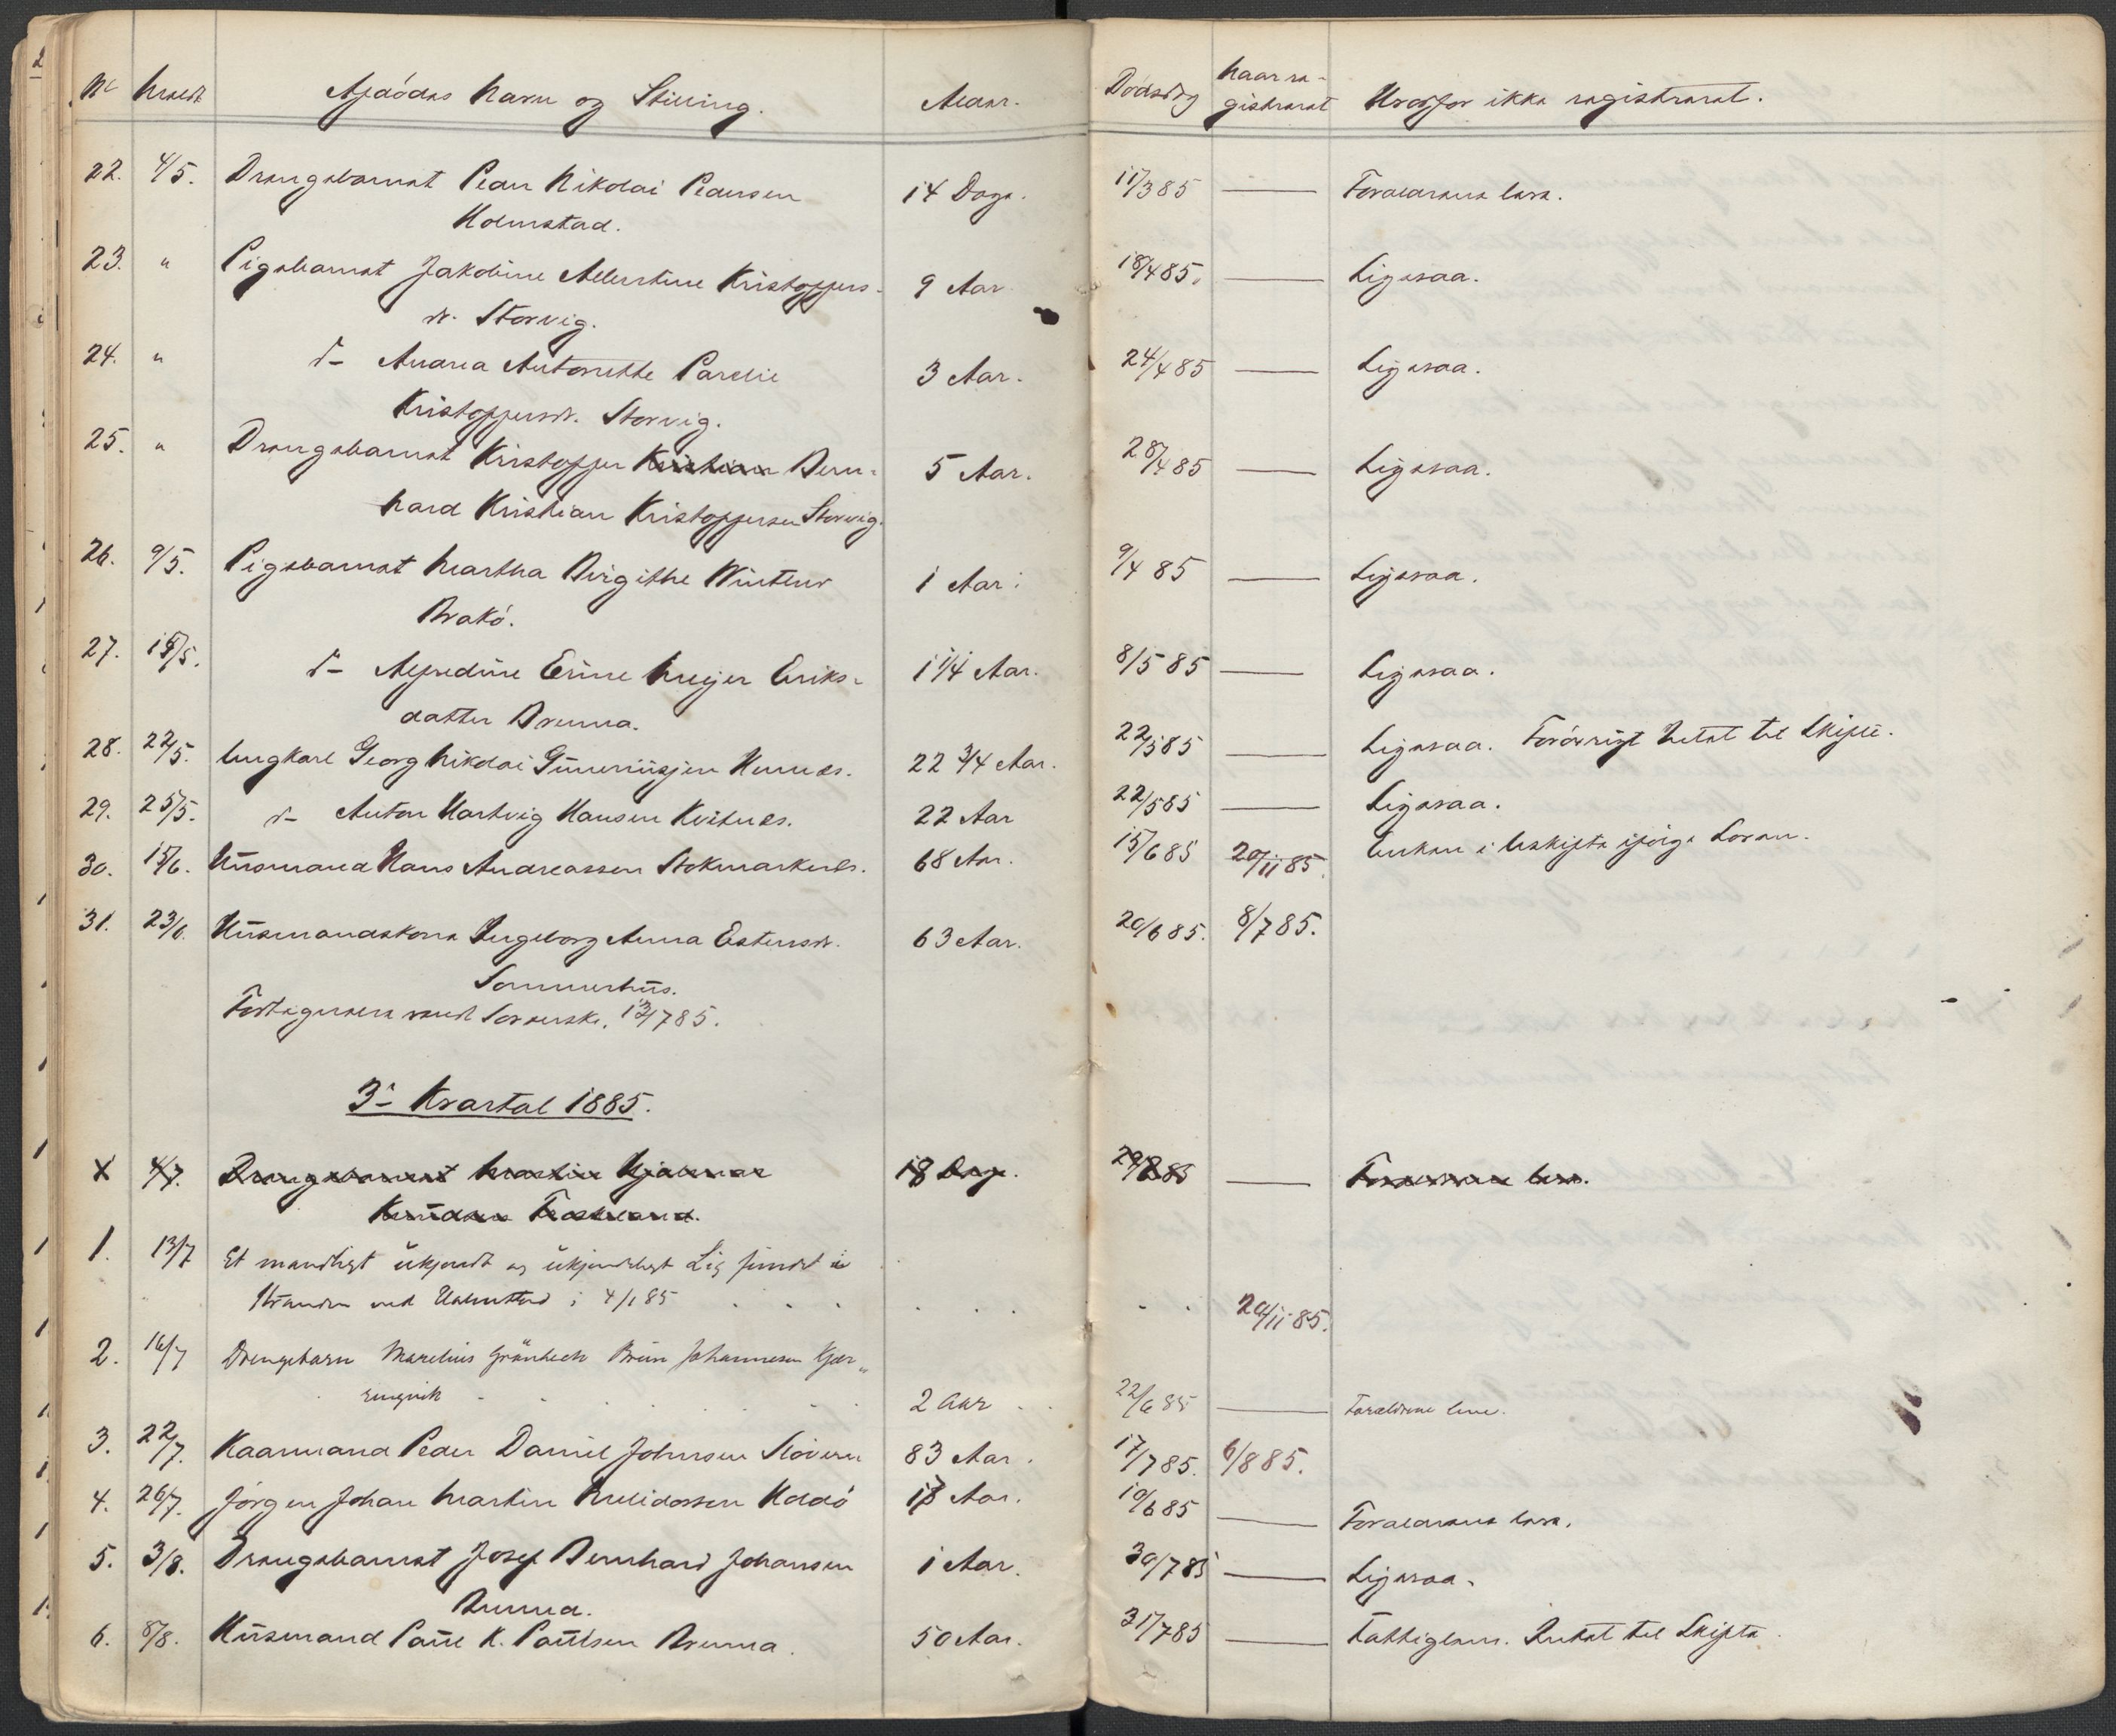 No Meldt Afdödes Navn og Stilling. Alder. Dödsdag Naar re-
gistreret Hvorfor ikke registreret.
22. 4/5. Drengebarnet Peder Nikolai Pedersen 14 Dage. 11/3 85 — Forældrene leve.
Holmstad.
23. " Pigebarnet Jakobine Albertine Kristoffers- 9 Aar 18/4 85. — Ligesaa.
dr. Storvig.
24. " d- Anaria Antonette Parelie 3 Aar. 24/4 85 — Ligesaa.
Kristoffersdr. Storvig.
25. " Drengebarnet Kristoffer Kristian Bern- 5 Aar. 28/4 85 — Ligesaa.
hard Kristian Kristoffersen Storvig.
26. 9/5. Pigebarnet Martha Birgithe Winther 1 Aar. 9/4 85 — Ligesaa.
Brakö.
27. 15/5. d- Alfredine Erine Meyer Eriks- 1 1/4 Aar. 8/5 85 — Ligesaa.
datter Brenna.
28. 22/5. Ungkarl Georg Nikolai Guneriusen Hunæs. 22 3/4 Aar. 22/5 85 — Ligesaa. Forövrigt Intet til Skifte.
29. 25/5. d- Anton Hartvig Hansen Kvitnes. 22 Aar 22/5 85 — Ligesaa.
30. 15/6. Husmand Hans Andreassen Stokmarknes. 68 Aar. 15/6 85 20/11 85. Enken i Uskifte ifölge Loven.
31. 23/6. Husmandskone Ingeborg Anna Estensdr. 63 Aar. 20/6 85. 8/7 85.
Sommerhus.
Fortegnelse sendt Sorensk. 13/7 85.
3- Kvartal 1885.
4/7. Drengebarnet Martin Hjalmar 18 Dage. 29/6 85 — Forældrene leve.
Knudsen Frostland.
1. 13/7 Et mandligt ukjendt og ukjendeligt Lig fundet i
Stranden ved Holmstad i 4/1 85 . . . . . . . 20/11 85.
2. 16/7 Drengebarn Marelius Grönbech Brun Johannesen Kjær-
ringvik . . . . 2 Aar . . 22/6 85 — Forældrene leve.
3. 22/7. Kaarmand Peder Daniel Johnsen Slöveren 83 Aar. 17/7 85. 6/8 85.
4. 26/7. Jörgen Johan Martin Hoddö 18 Aar. 10/6 85 — Forældrene leve.
5. 3/8. Drengebarnet Josef Bernhard Johansen 1 Aar. 30/7 85 — Ligesaa.
Brenna.
6. 8/8. Husmand Paul K. Paulsen Brenna. 50 Aar. 31/7 85 — Fattiglem. Intet til Skifte.